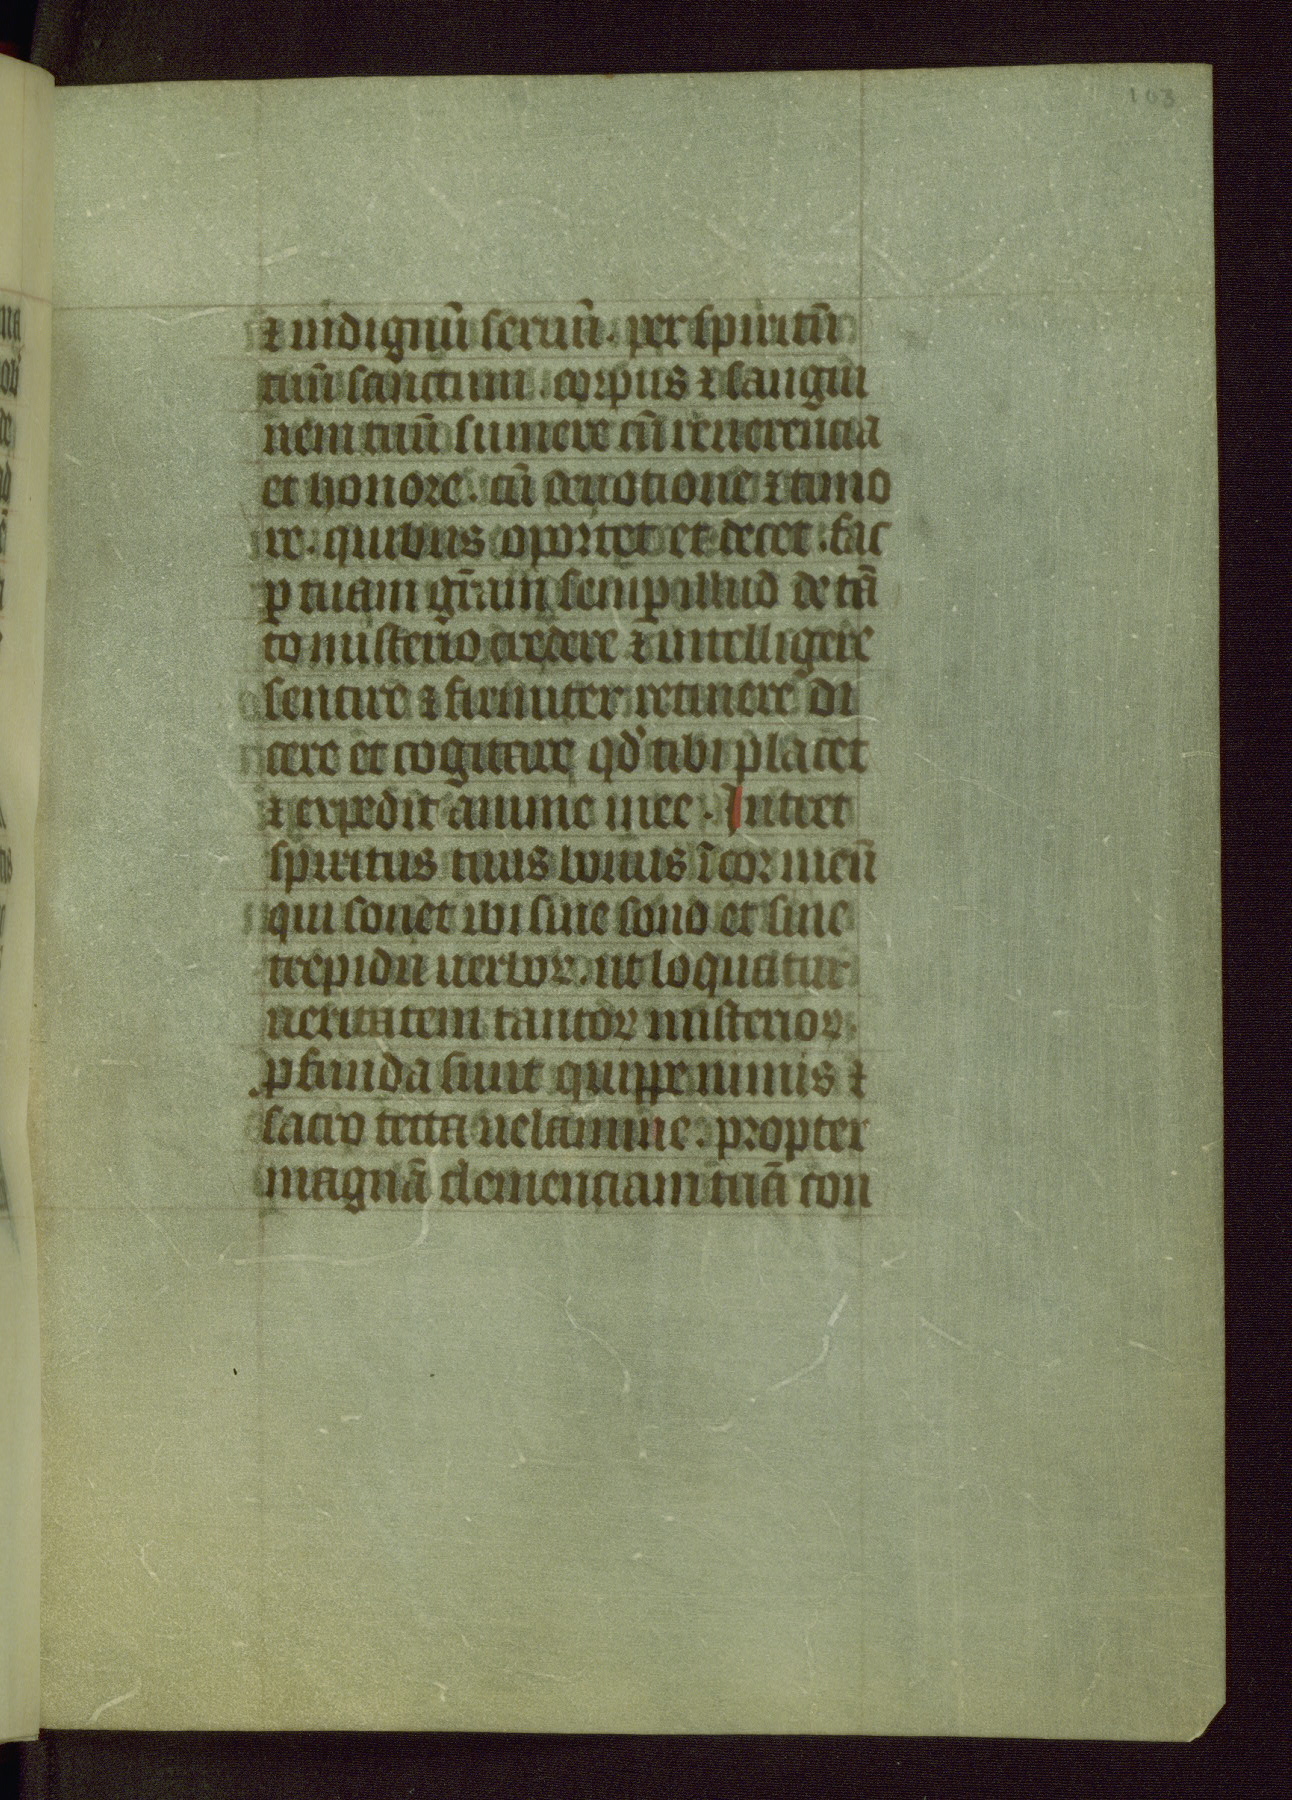 103
⁊ indignū seruū. per spiritū
tuū sanctum. corpus ⁊ sangui
nem tuū sumere cū reuerencia
et honore. cū deuotione ⁊ timo
re. quibus oportet et decet. fac
ꝑ tuam gr̄am semꝑ illud de tā
to misterio credere ⁊ intelligere
sentire ⁊ firmiter retinere di
cere et cogitare qd' tibi placet
⁊ expedit anime mee. Intret
spiritus tuus bonus ī cor meū
qui sonet ibi sine sono et sine
trepidu uerboꝝ. ut loquatur
ueritatem tantoꝝ misterioꝝ.
ꝓfunda sunt quippe nimis ⁊
sacro tecta uelamine. propter
magnā clemenciam tuā con